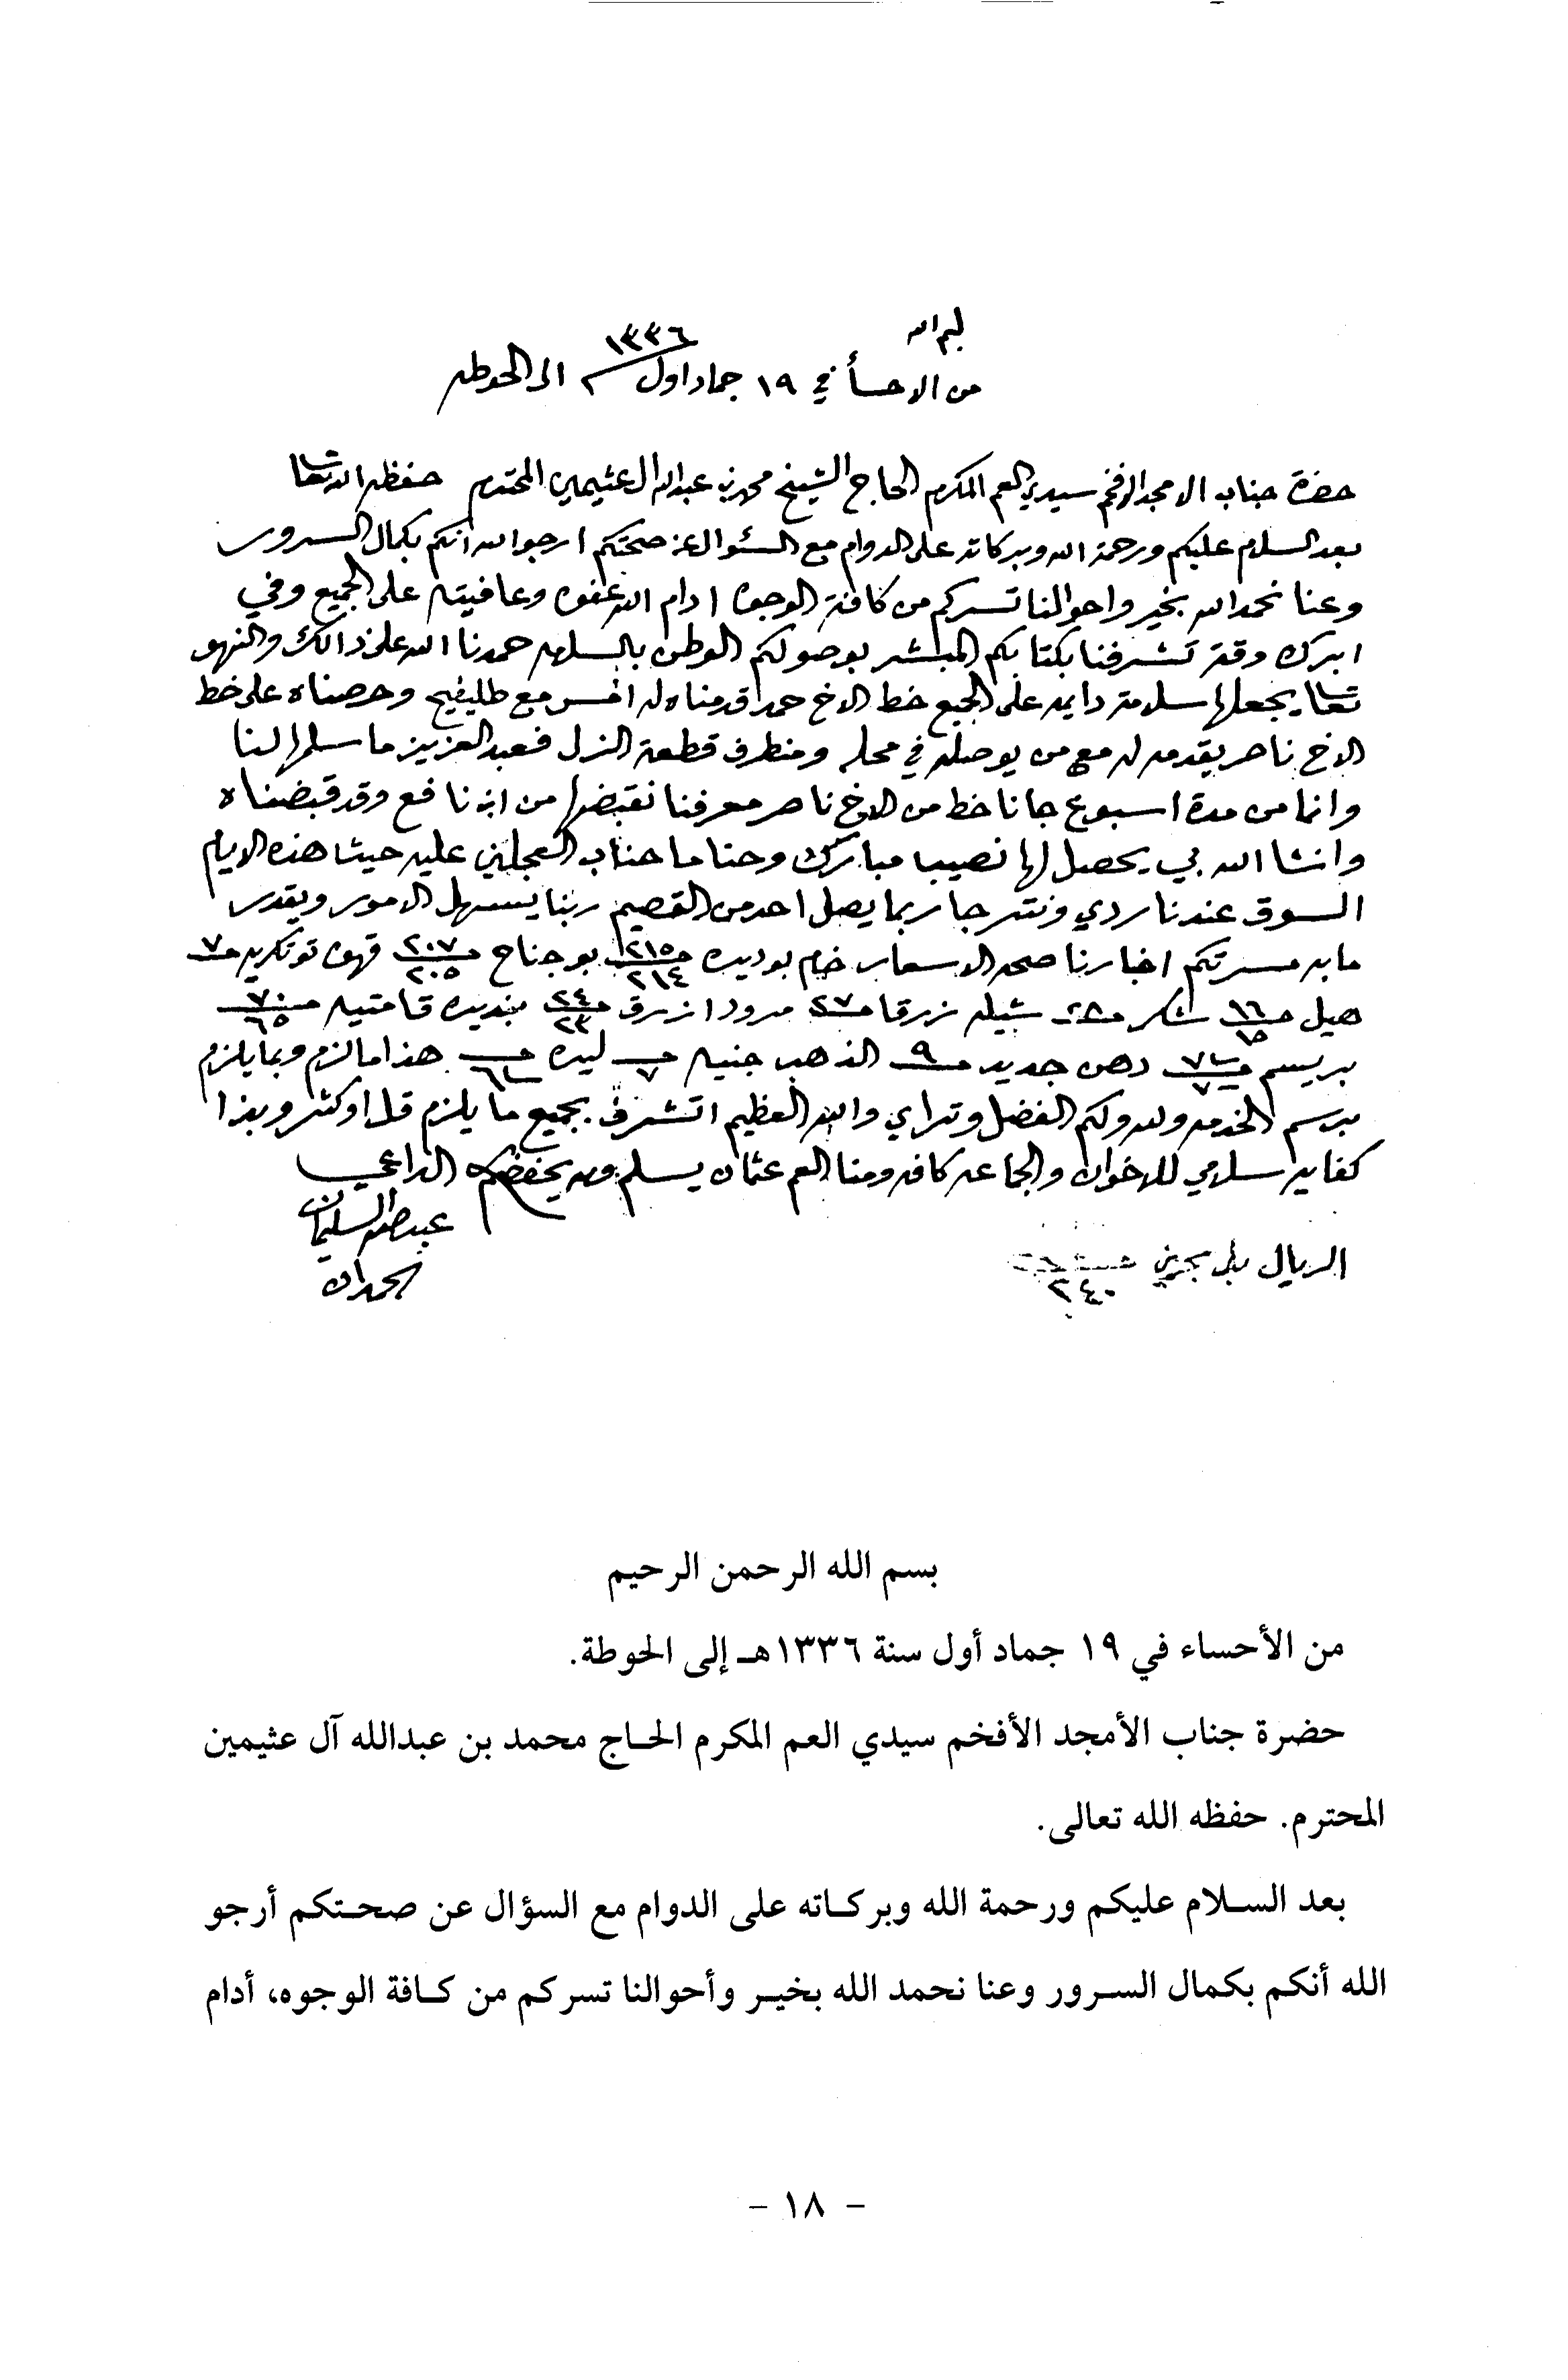 بسم الله
١٣٣٦
من الاحسأ في ١٩ جماد اول سـ الى الحوطه
حضرة جناب الامجد الافخم سيدي العم المكرم الحاج الشيخ محمد بن عبدالله ال عثيمين المحترم حفظه الله تعالى
بعد السلام عليكم ورحمة الله وبركاته على الدوام مع السئوال عن صحتكم ارجوا الله انكم بكمال السرور
وعنا نحمد الله بخير واحوالنا تسركم من كافة الوجوه ادام الله عفوه وعافيته على الجميع وفي
ابرك وقت تشرفنا بكتابكم المبشر بوصولكم الوطن بالسلامه حمدنا الله على ذالك والنهو
تعالى يجعلها سلامة دايمه على الجميع خط الاخ حمد قدمناه له امس مع طليفيح وحرصناه على خط
الاخ ناصر يقدمه له مع من يوصله في محله ومنطرف قطعة النزل فعبدالعزيز ما سلمها لنا
وانما من مدة اسبوع جانا خط من الاخ ناصر معرفنا نقبضها من ابن نافع وقد قبضناه
وانشا الله بي يحصل لها نصيبا مبارك وحنا ما حناب العجلين عليه حيث هذه الايام
السوق عندنا ردي ونترجا ربما يصل احد من القصيم ربنا يسهل الامور ويقدر
ما به مسرتكم اخبارنا صحه الاسعار خام بوديره ٢١٥ ٢١٤ بوجناح ٢٠٧ ٢٠٥ قهوه توتكريه ٧
هيل ١٦ ١٥ شكر ٢٨ شيله زرقا ٢٧ مرود ازرق ٢٤ ٢٣ بنديره قامتيه ٧٠ ٦٥
بريسم دهن جديد ٩ الذهب جنيه ٧ ليره هذا مالزم وبما يلزم
برسم الخدمه ولله ولكم الفضل وتراي والله العظيم اتشرف بجميع ما يلزم قل او كثر وبهذا
كفايه سلامي للاخوان والجماعه كافه ومنا العم عثمان يسلم والله يحفظكم الداعي
عبدالله السليمان
الحمدان
الريال ٢٤٠
بسم الله الرحمن الرحيم
من الأحساء في ١٩ جماد أول سنة ١٣٣٦هـ إلى الحوطة.
حضرة جناب الأمجد الأفخم سيدي العم المكرم الحاج محمد بن عبدالله آل عثيمين
المحترم. حفظه الله تعالى.
بعد السلام عليكم ورحمة الله وبركاته على الدوام مع السؤال عن صحتكم أرجو
الله أنكم بكمال السرور وعنا نحمد الله بخير وأحوالنا تسركم من كافة الوجوه، أدام
- ١٨ -